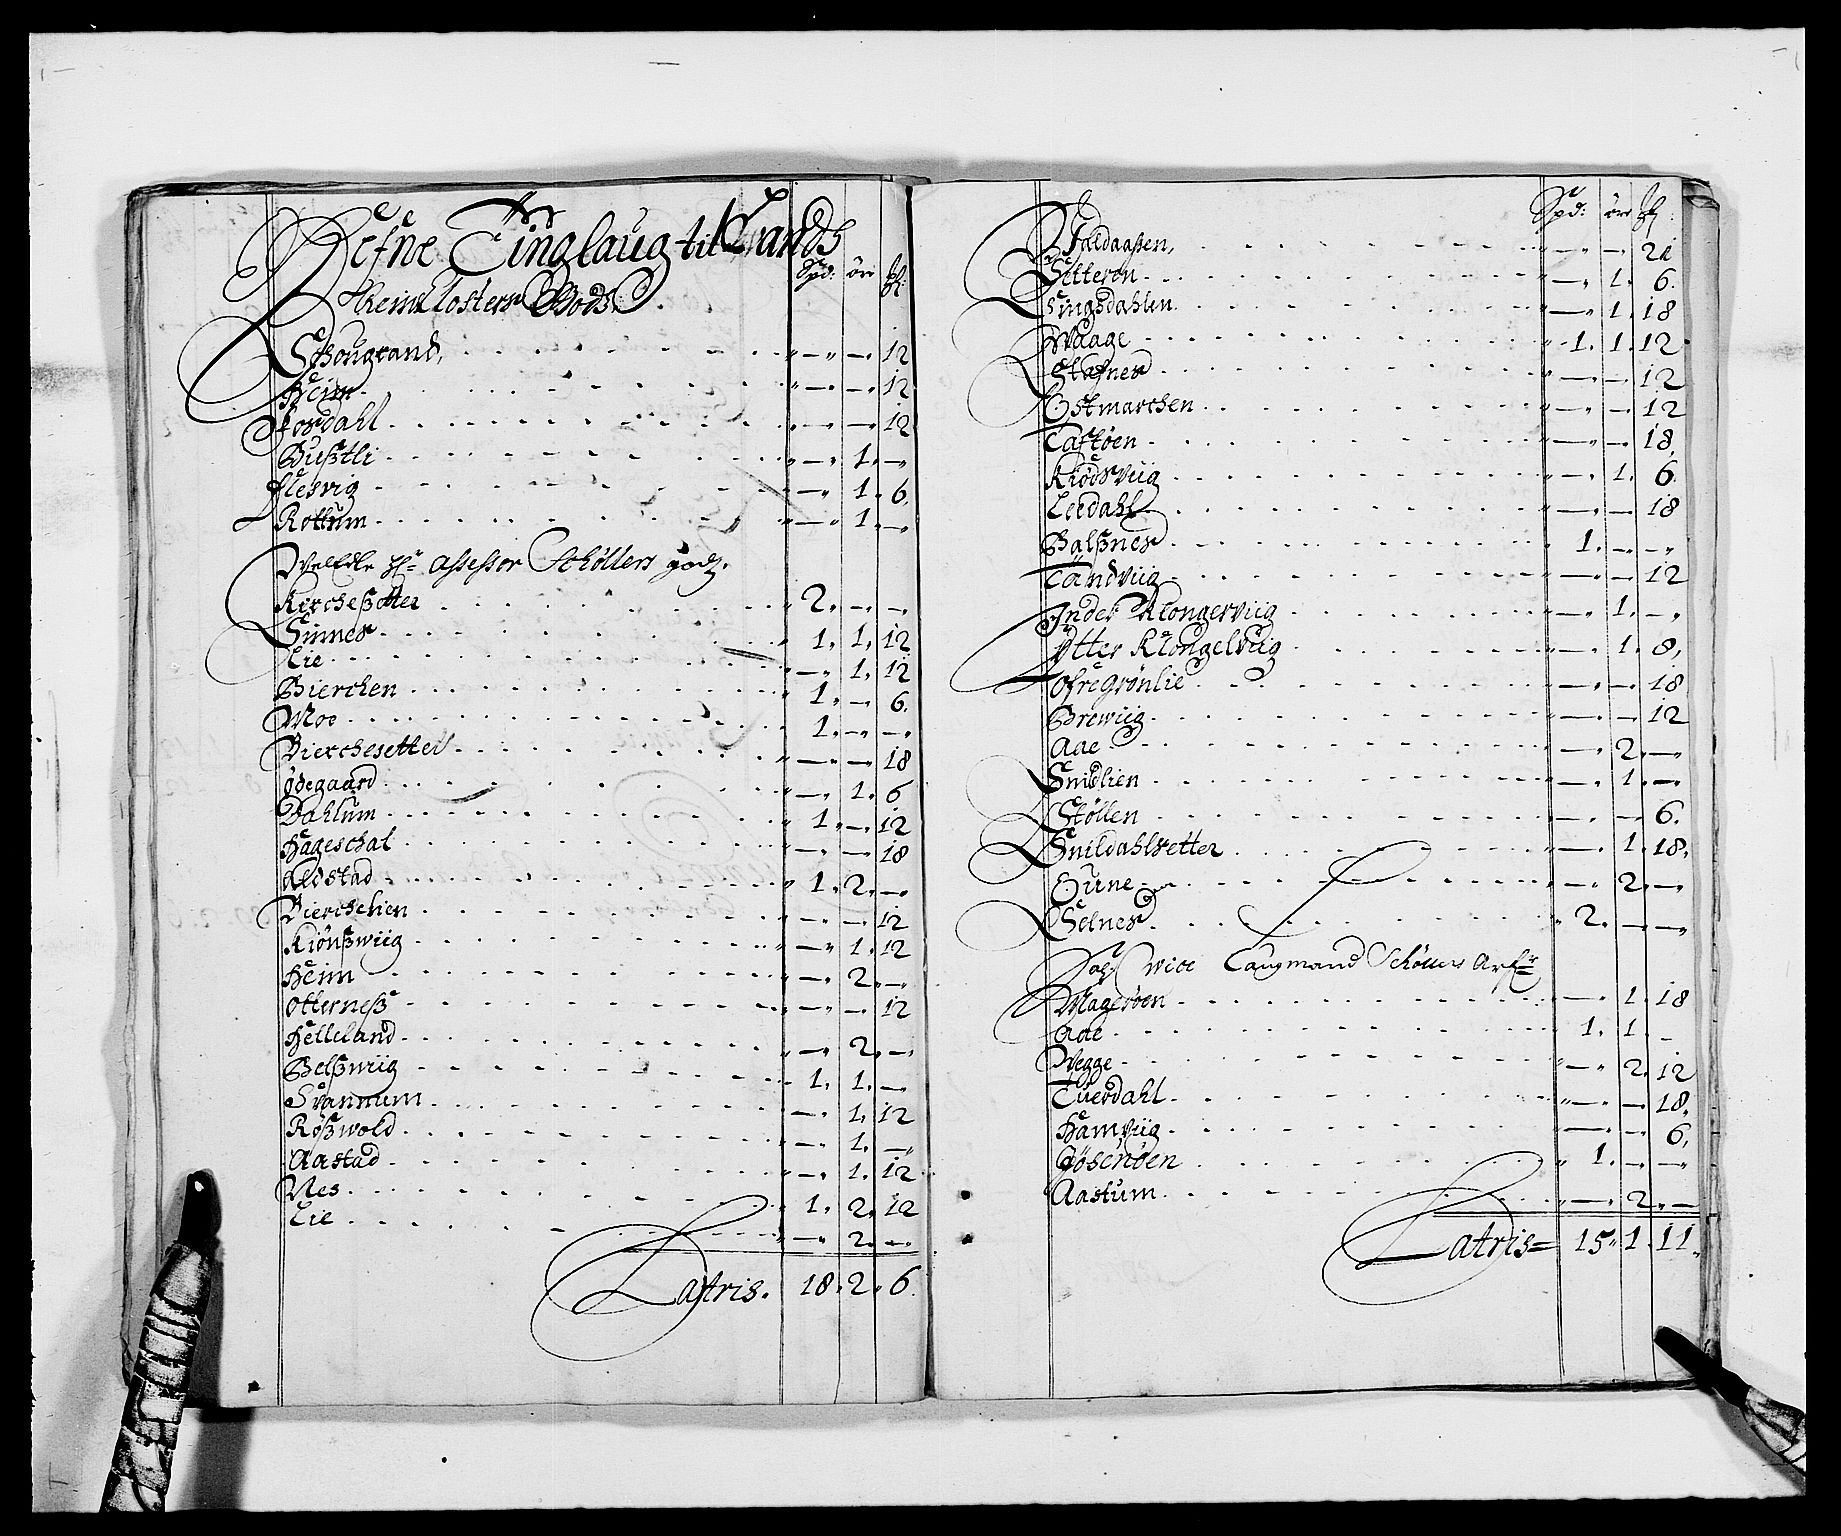 Refne Tinglaug til Lands
Spd: ör
Reins Closters Godtz
Schougrand, " — " — " 12
Heim " — " — " 12
Josdahl " — " — " 12
Bußtli " — " 1 " —
Flesvig " — " 1 " 6
Rottum " — " 1 " —
VelEdle Hr Assessor Schøllers godz.
Kircheßetter 2 " — " —
Sinnes 1 " 1 " 12
Lie " — " 1 " 12
Bierchen 1 " — " 6
Moe 1 " — " —
Bierchesetter " — " — " 18
Ødegaard " — " 1 " 6
Dahlum 1 " — " 12
Hageschal " — " — " 18
Aldstad 1 " 2 " —
Bierchelien " — " — " 12
Kiönßwiig " — " 1 " 12
Heim " — " 2 " —
Otterneß " — " — " 12
Helleland " — " 2 " —
Belßwiig 1 " 1 " —
Srannum " — " 1 " 12
Rößwold " — " 1 " —
Aastad " — " 1 " 12
Nes 1 " 2 " 12
Lie " — " 2 " —
Latris. 18 " 2 " 6
Spd: ör
Faldaaßen, " — " — " 21
Setteren " — " 1 " 6
Singsdahlen " — " 1 " 18
Waage 1 " 1 " 12
Stafnes " — " — " 12
Ostmarchen " — " — " 12
Taftøen " — " — " 18
Kiödsviig " — " 1 " 6
Leedahl " — " — " 18
Balßnes 1 " — " —
Tandviig " — " — " 12
Inder Klongerviig " — " 1 " —
Ytter Klongelviig " — " 1 " 8
Ofre Grønlie " — " — " 18
Brewiig " — " — " 12
Aae " — " 2 " —
Snildlien " — " 1 " —
Stöllen " — " — " 6
Snildahlsetter " — " 1 " 18
Ourne " — " 2 " —
Selnes 2 " — " —
Sal: wice Laugmand Schøllers Arf:
Magerøen " — " 1 " 18
Aae 1 " 1 " —
Vegge " — " 2 " 12
Tuerdahl " — " — " 18
Hamviig " — " — " 6
Jøsenøen 1 " — " —
Aastum " — " 2 " —
Latris 15 " 1 " 11